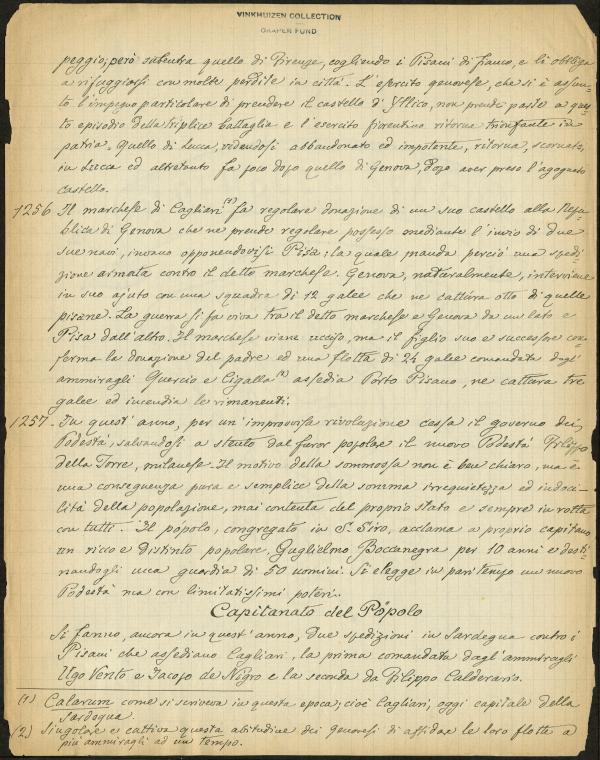 VINKHUIZEN COLLECTION
DRAPER FUND
peggio; però subentra quello di Firenze, cogliendo i Pisani di fianco, e li obbliga
a rifuggiarsi con molte perdite in città. L'esercito genovese, che si è assun-
to l'impegno particolare di prendere il castello d'Illico, non prende parte a que-
to episodio della triplice battaglia e l'esercito fiorentino ritorna trionfante in
patria. Quello di Lucca, vedendosi abbandonato ed impotente, ritorna, scornato,
in Lucca ed altretanto fa poco dopo quello di Genova, dopo aver preso l'agognato
castello.
1256 Il marchese di Cagliari (1) fa regolare donazione di un suo castello alla Repu-
blica di Genova che ne prende regolare possesso mediante l'invio di due
sue navi, invano opponendovisi Pisa; la quale manda perciò una spedi-
zione armata contro il detto marchese. Genova, naturalmente, interviene
in suo ajuto con una squadra di 12 galee che ne cattura otto di quelle
pisane. La guerra si fa viva tra il detto marchese e Genova da un lato e
Pisa dall'altro. Il marchese viene ucciso, ma il figlio suo e successore con-
ferma la donazione del padre ed una flotta di 24 galee comandata dagl'
ammiragli Guercio e Cigalla (2) assedia Porto Pisano, ne cattura tre
galee ed incendia le rimanenti.
1257. In quest'anno, per un'improvvisa rivoluzione cessa il governo dei
Podestà, salvandosi a stento dal furor popolare il nuovo Podestà Filippo
della Torre, milanese. Il motivo della sommossa non è ben chiaro, ma è
una conseguenza pura e semplice della somma irrequietezza ed indoci-
lità della popolazione, mai contenta del proprio stato e sempre in rotta
con tutti. Il popolo, congregato in S. Siro, acclama a proprio capitano
un ricco e distinto popolare, Guglielmo Boccanegra per 10 anni e desti-
nandogli una guardia di 50 uomini. Si elegge in pari tempo un nuovo
Podestà ma con limitatissimi poteri.
Capitanato del Popolo
Si fanno, ancora in quest'anno, due spedizioni in Sardegna contro i
Pisani che assediano Cagliari, la prima comandata dagl'ammiragli
Ugo Vento e Jacopo de Nigro e la seconda da Filippo Calderario.
(1) Calarum come si scriveva in questa epoca; cioè Cagliari, oggi capitale della
Sardegna.
(2) Singolare e cattiva questa abitudine dei Genovesi di affidare le loro flotte a
più ammiragli ad un tempo.